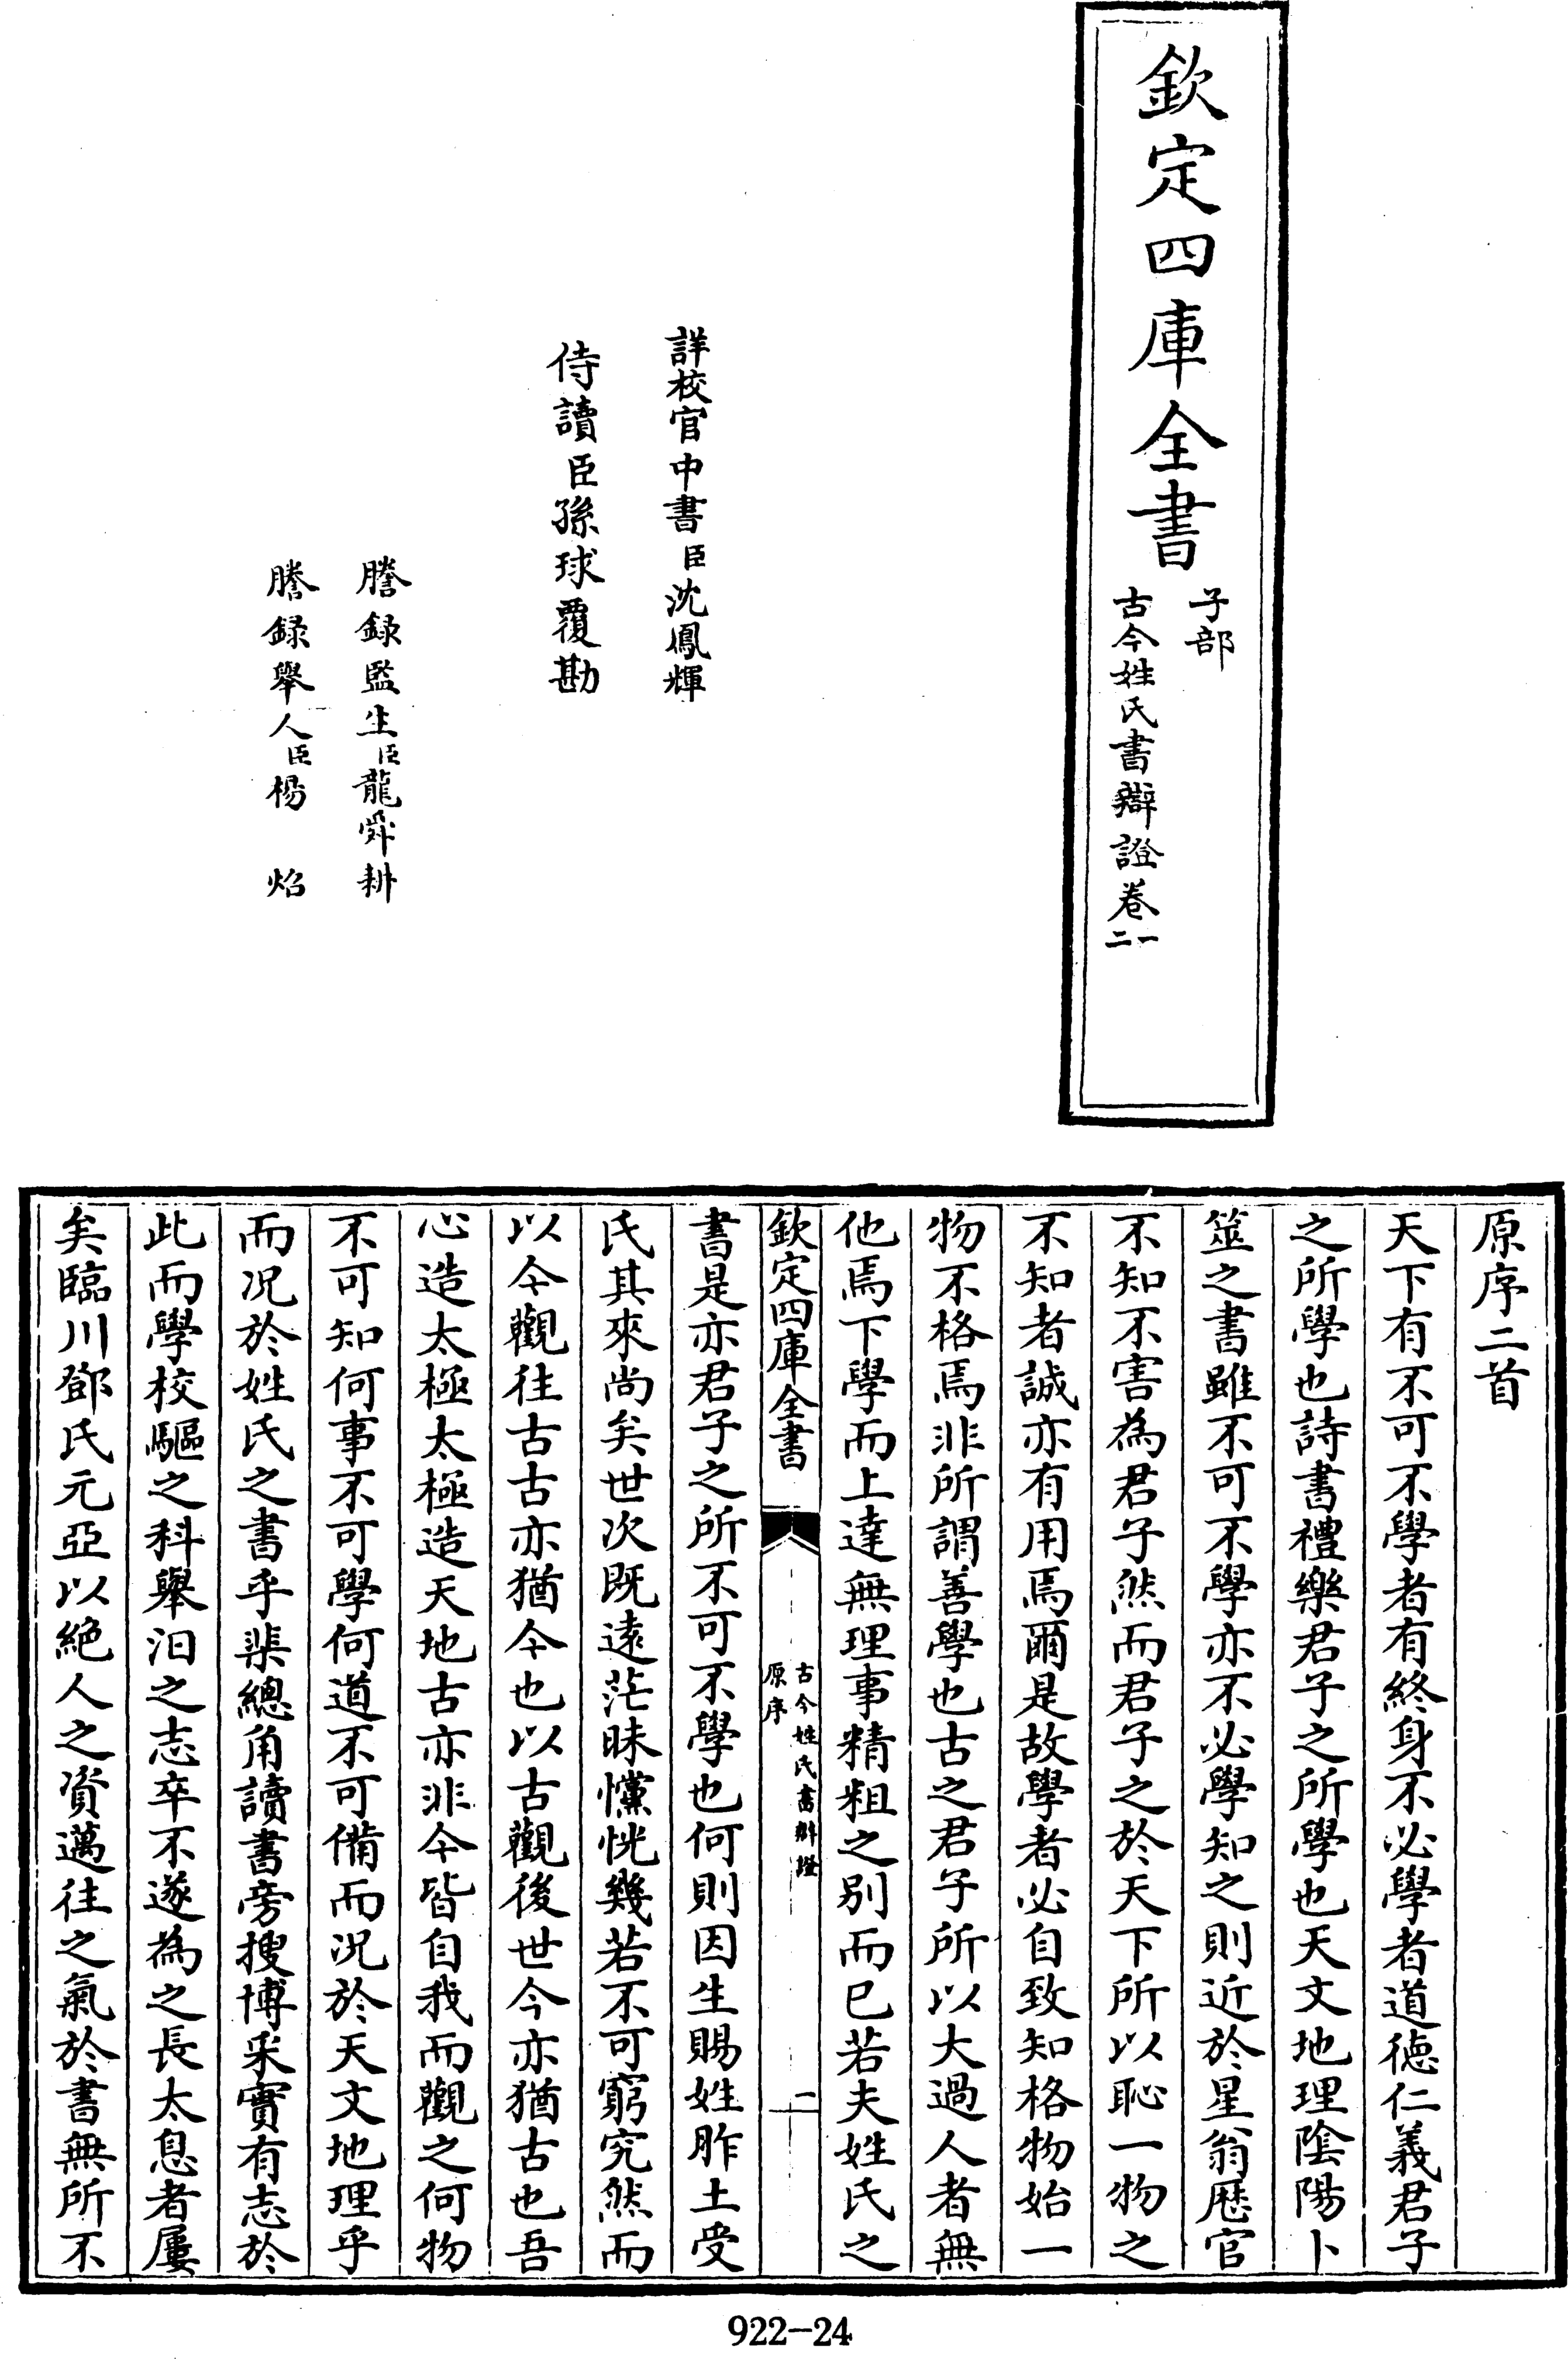 欽定四庫全書
子部
古今姓氏書辯證卷一二
詳校官中書臣沈鳳輝
侍讀臣孫球覆勘
謄錄監生臣龍舜耕
謄錄舉人臣楊焰
原序二首
天下有不可不學者有終身不必學者道德仁義君子
之所學也詩書禮樂君子之所學也天文地理陰陽卜
筮之書雖不可不學亦不必學知之則近於星翁厯官
不知不害為君子然而君子之於天下所以恥一物之
不知者誠亦有用焉爾是故學者必自致知格物始一
物不格焉非所謂善學也古之君子所以大過人者無
他焉下學而上達無理事精粗之別而已若夫姓氏之
欽定四庫全書
古今姓氏書辯證
原序
一
書是亦君子之所不可不學也何則因生賜姓胙土受
氏其來尚矣世次既遠茫昧戃恍幾若不可窮究然而
以今觀往古古亦猶今也以古觀後世今亦猶古也吾
心造太極太極造天地古亦非今皆自我而觀之何物
不可知何事不可學何道不可備而况於天文地理乎
而况於姓氏之書乎椞總角讀書旁搜博采實有志於
此而學校驅之科舉汩之志卒不遂為之長太息者屢
矣臨川鄧氏元亞以絶人之資邁往之氣於書無所不
922-24